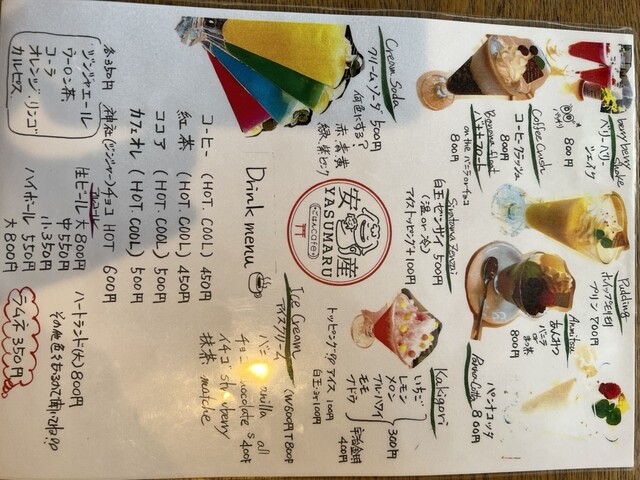 berry berry Shake
ベリーベリー
シェイク
800円
Coffee Crush
コーヒークラッシュ
800円
Banana float
バナナフロート
on the バニラorチョコ
800円
Pudding
ホイップ
プリン 700円
Anmitsu
あんみつ
バニラ
or
まっ茶
800円
Panna Cotta
パンナコッタ
800円
Cream Soda
クリームソーダ 500円
何色にする?
赤 青 黄
緑 紫 ピンク
白玉ぜんざい 500円
(温 or 冷)
アイストッピング+100円
Kakigori
いちご
レモン
メロン
ブルーハワイ
モモ
ブドウ
300円
宇治金時
400円
トッピング アイス 100円
白玉 100円
安産
YASUMARU
ごはんcafe
Ice Cream
アイスクリーム
W600円 T800円
バニラ vanilla
チョコ chocolate
イチゴ strawberry
抹茶 matcha
all
S 400円
Drink menu
コーヒー (HOT. COOL) 450円
紅茶 (HOT. COOL) 450円
ココア (HOT. COOL) 500円
カフェオレ (HOT. COOL) 500円
神社(ジンジャー)チョコ HOT 600円
各350円
ジンジャエール
ウーロン茶
コーラ
オレンジ・リンゴ
カルピス
アルコール
生ビール 大800円
中550円
小350円
ハイボール 550円
大800円
ハートランド(大)800円
その他色々あるのできいてね!!
ラムネ350円